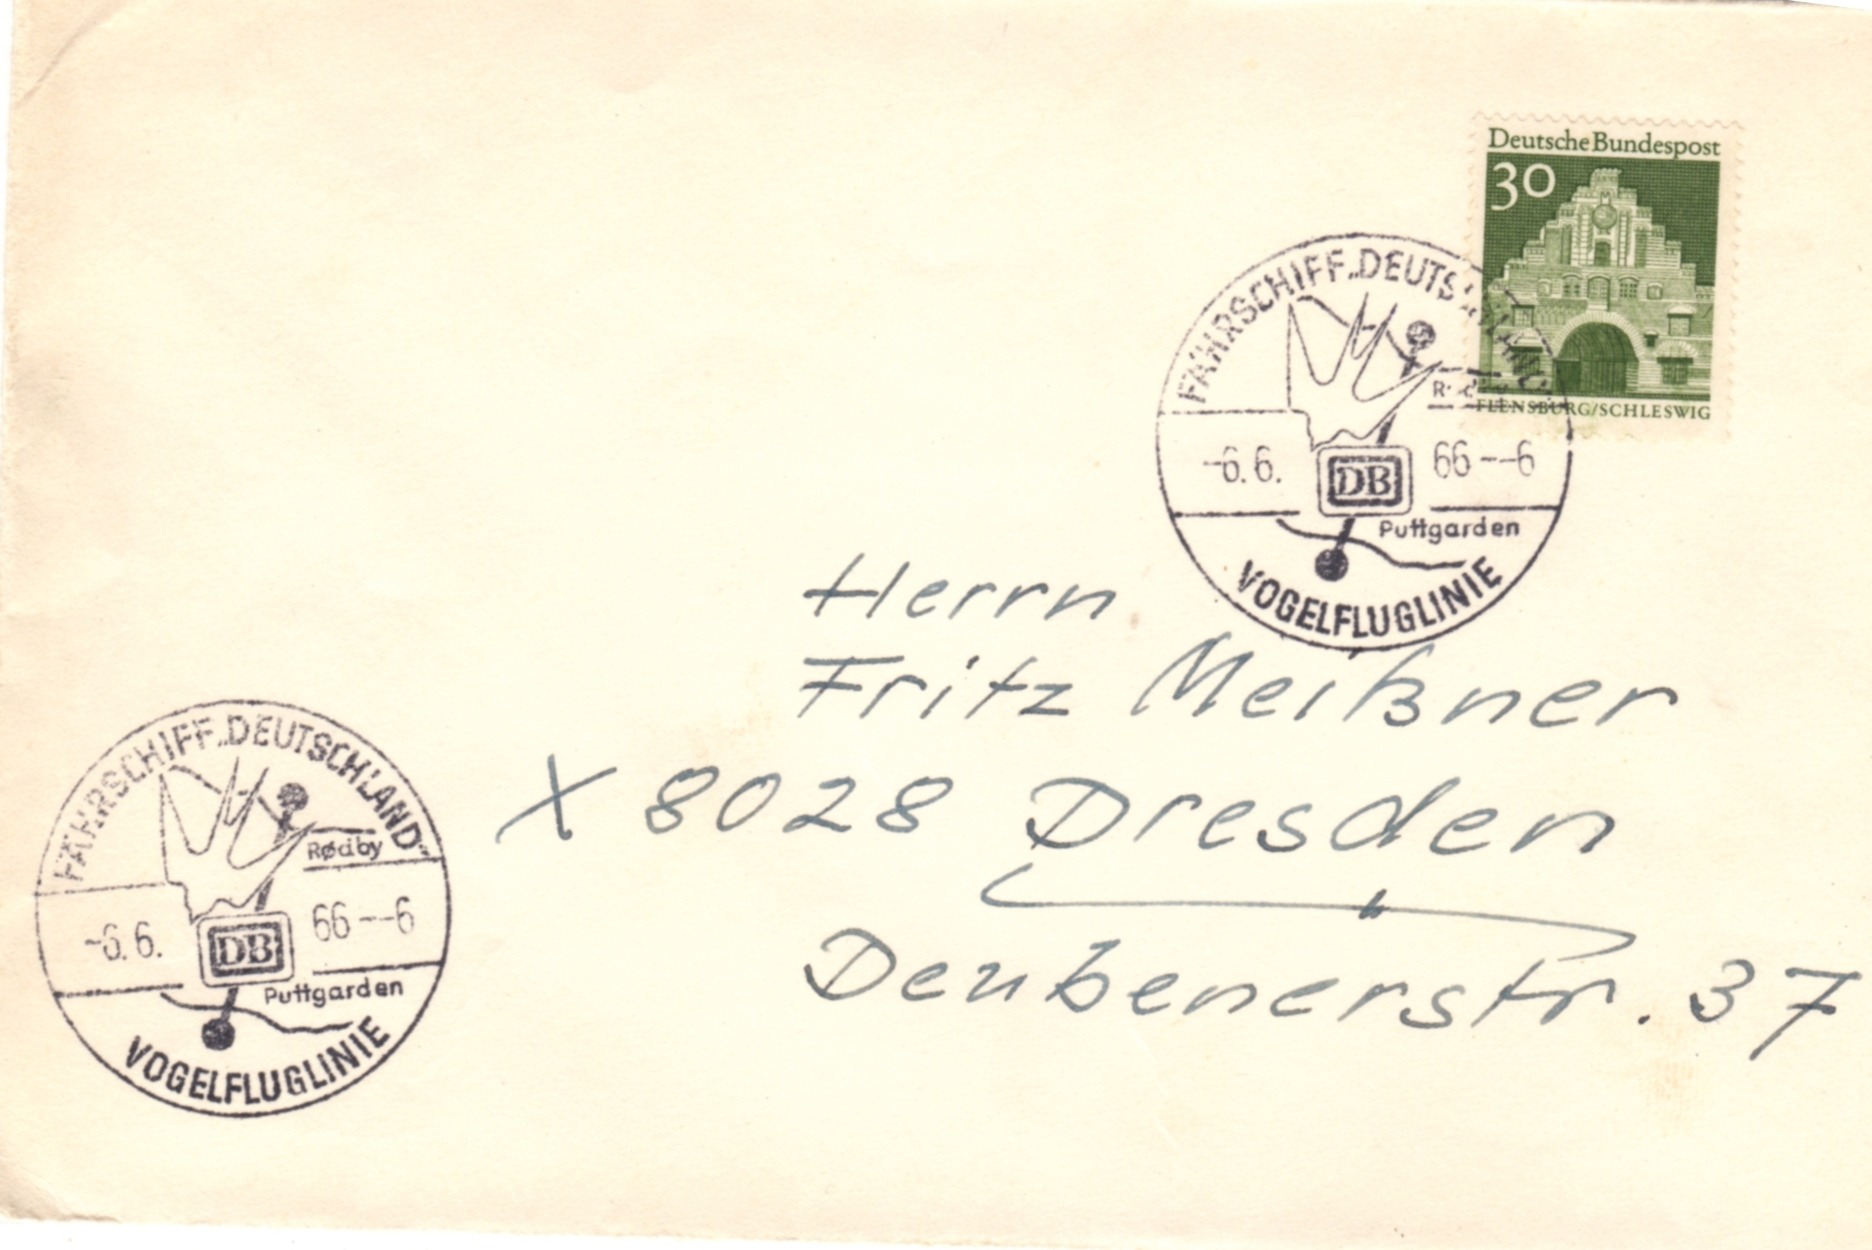 Deutsche Bundespost
30
FLENSBURG/SCHLESWIG
FÄHRSCHIFF „DEUTSCHLAND“
-6.6. DB 66--6
Puttgarden
VOGELFLUGLINIE
Herrn
Fritz Meißner
X 8028 Dresden
Deubenerstr. 37
FÄHRSCHIFF „DEUTSCHLAND“
Rødby
-6.6. DB 66--6
Puttgarden
VOGELFLUGLINIE